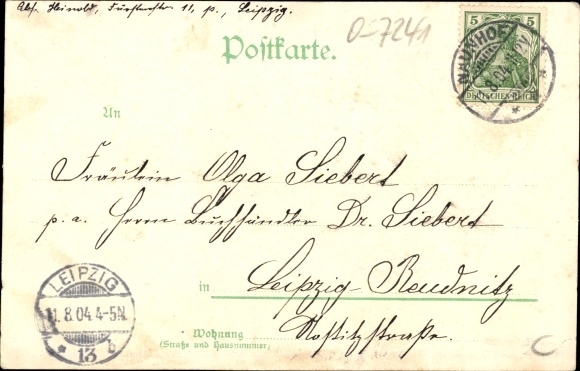 Abs. Heinold, Fürstenstr 11, p., Leipzig.
O-7241
Postkarte.
5 5
DEUTSCHES REICH
NAUNHOF
8.04
An
Fräulein Olga Siebert
p. a. Herrn Buchhändler Dr. Siebert
in Leipzig-Reudnitz
Wohnung
(Straße und Hausnummer)
Nostitzstraße.
LEIPZIG
11.8.04.4-5N.
* 13 b